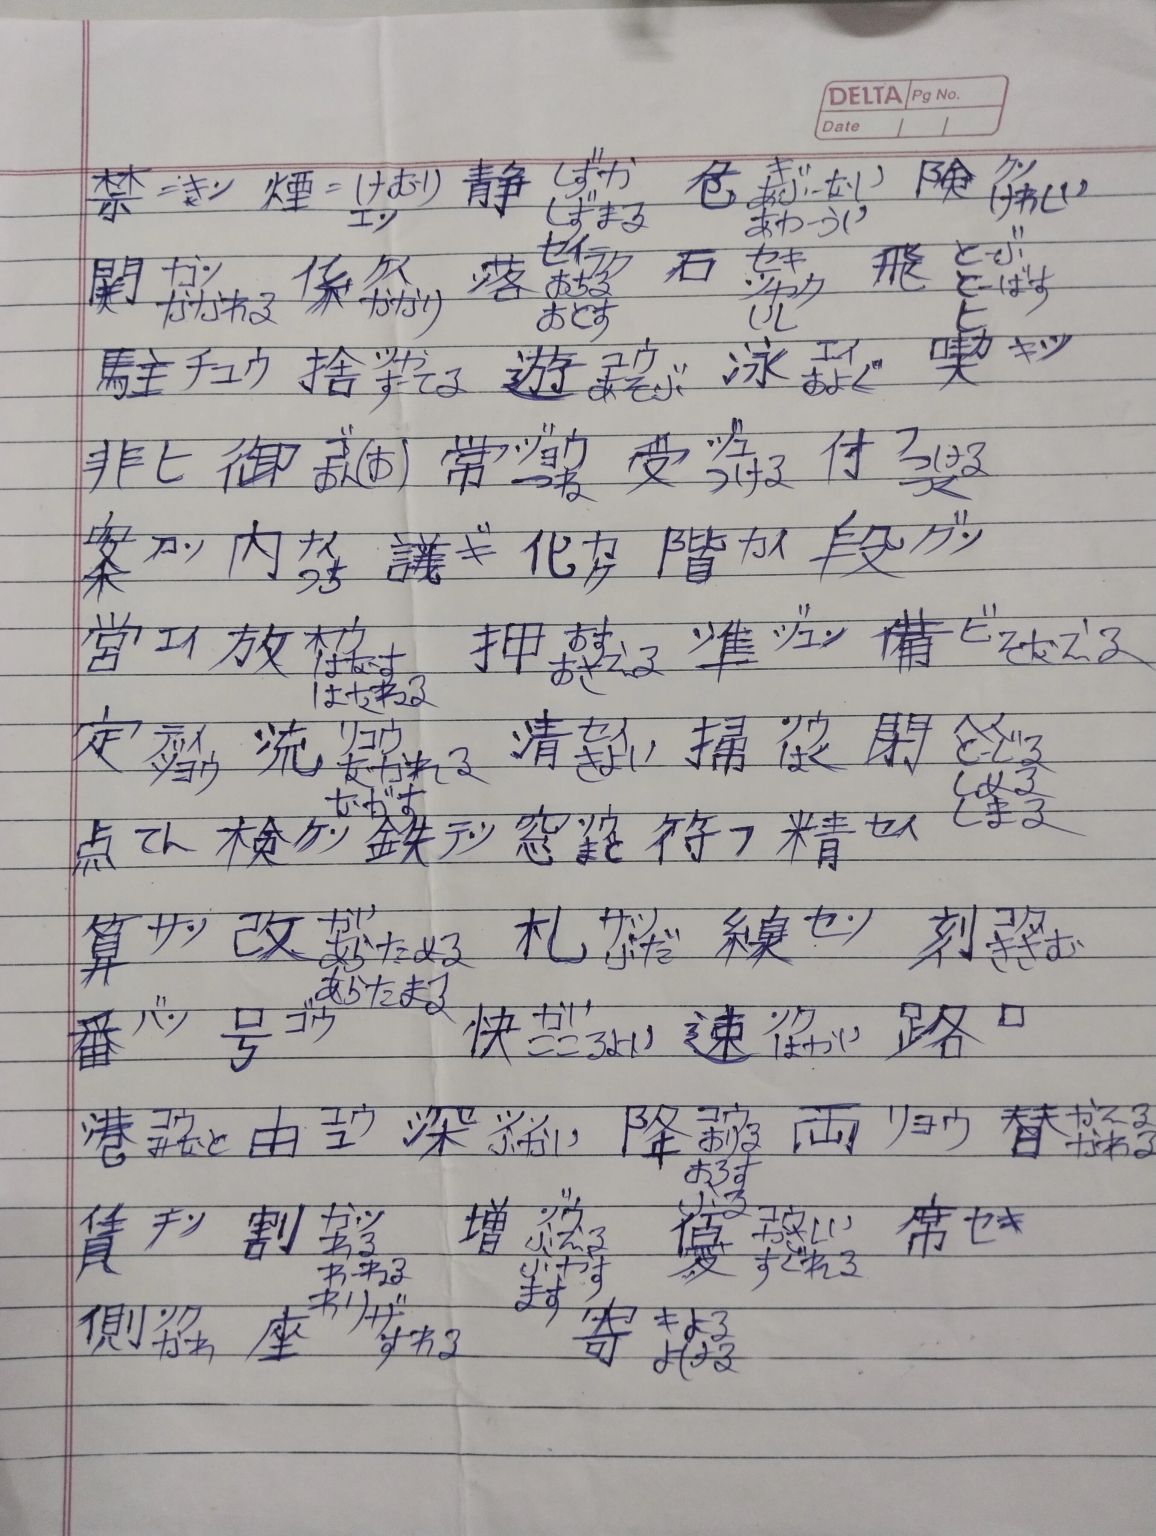 DELTA Pg No.
Date
禁=きン 煙=けむり エン 静 しずか しずまる 危 き あぶーない あわーうい 険 ケン けわしい
関 カン かかわる 係 ケイ かかり 落 おちる おとす 石 セキ シャク いし 飛 とーぶ とーばす ヒ
駐 チュウ 捨 シャ すーてる 遊 ユウ あそぶ 泳 エイ およぐ 喫 キツ
非 ヒ 御 ゴ おん(お) 常 ジョウ つね 受 ジュ つける 付 フ つける つく
案 アン 内 ナイ うち 議 ギ 化 カ ケ 階 カイ 段 ダン
営 エイ 放 ホウ はなす はなれる 押 おす おさえる 準 ジュン 備 ビ そなえる
定 テイ ジョウ 流 リュウ ながれる ながす 清 セイ きよい 掃 ソウ はく 閉 ヘイ とじる しめる しまる
点 てん 検 ケン 鉄 テツ 窓 まど 符 フ 精 セイ
算 サン 改 カイ あらためる あらたまる 札 サツ ふだ 練 セン 刻 コク きざむ
番 バン 号 ゴウ 快 カイ こころよい 速 ソク はやい 路 ロ
港 コウ みなと 由 ユウ ユ 深 シン ふかい 降 コウ おりる おろす ふる 両 リョウ 替 かえる かわる
賃 チン 割 カツ わる わーれる わり 増 ゾウ ふえる ふやす ます 優 すぐれる 席 セキ
側 ソク かわ 座 ザ すわる 寄 キ よる よせる